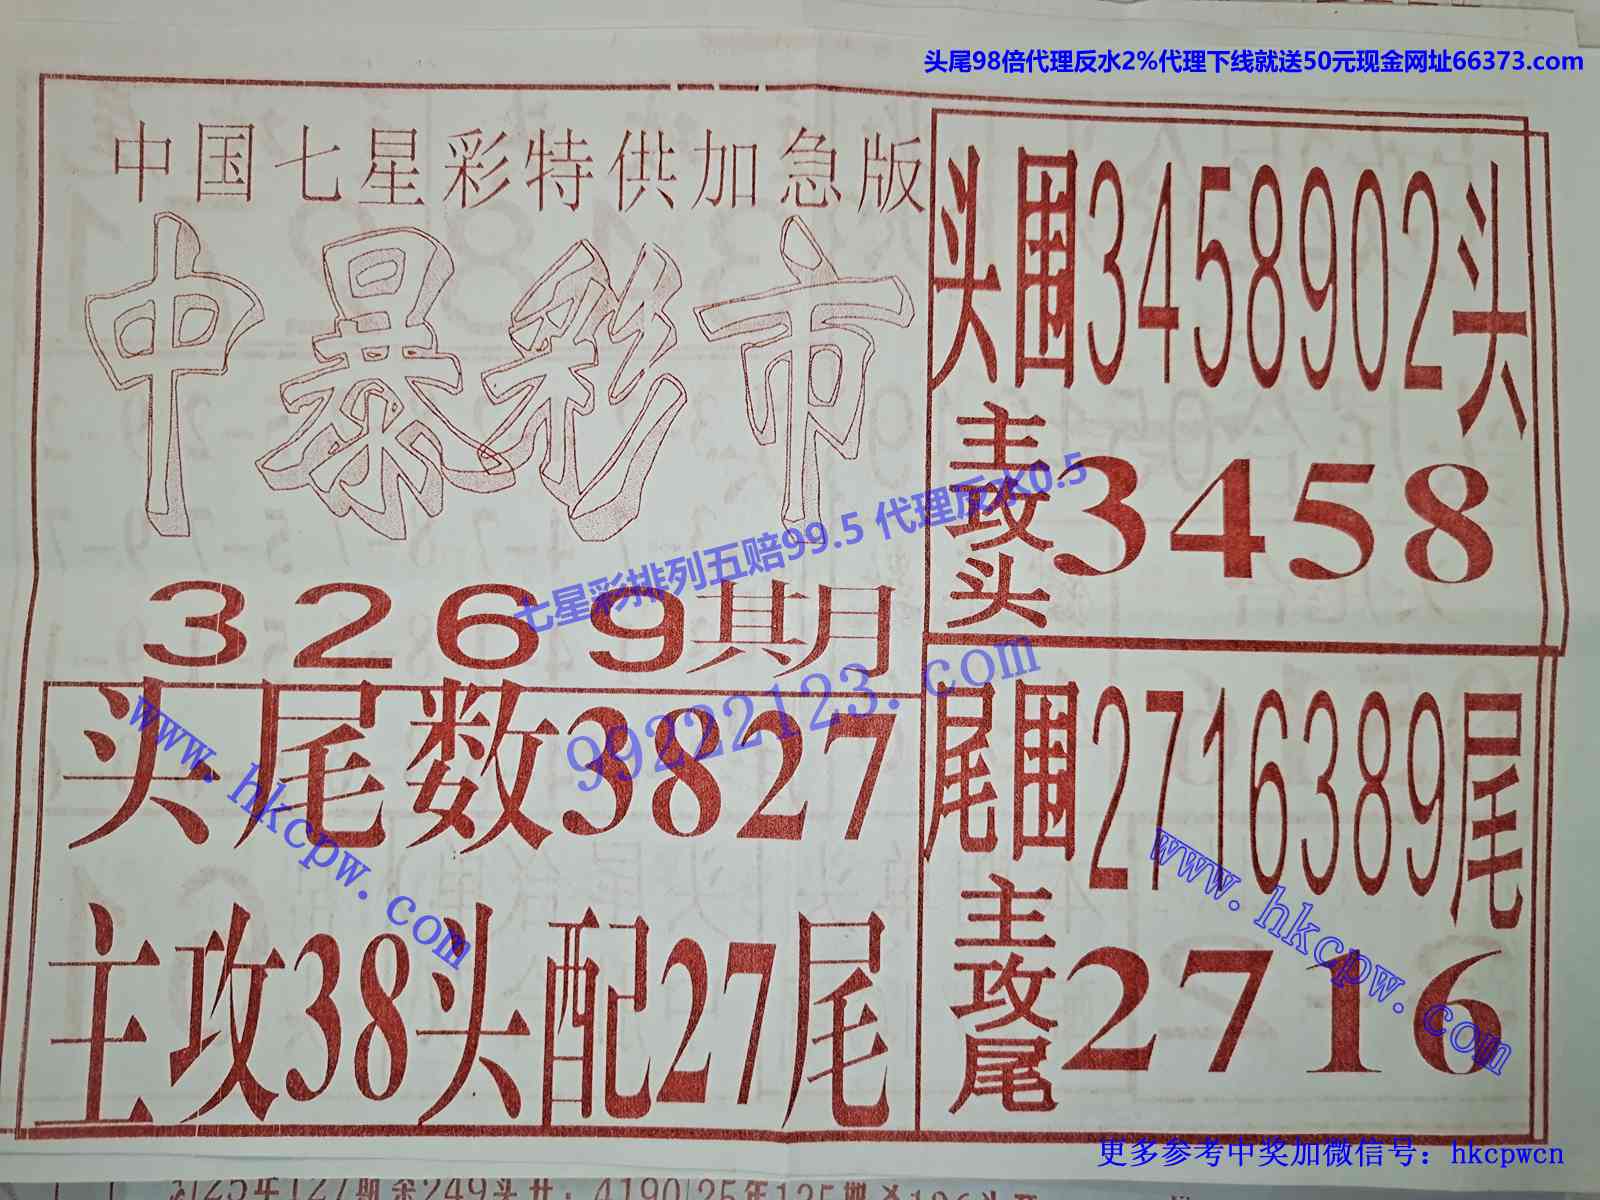 头尾98倍代理反水2%代理下线就送50元现金网址66373.com
中国七星彩特供加急版
中暴彩市
3269期
头尾数3827
主攻38头配27尾
头围3458902头
主攻头3458
尾围2716389尾
主攻尾2716
七星彩排列五赔99.5 代理反水0.5
99222123.com
www.hkcpw.com
www.hkcpw.com
更多参考中奖加微信号：hkcpwcn